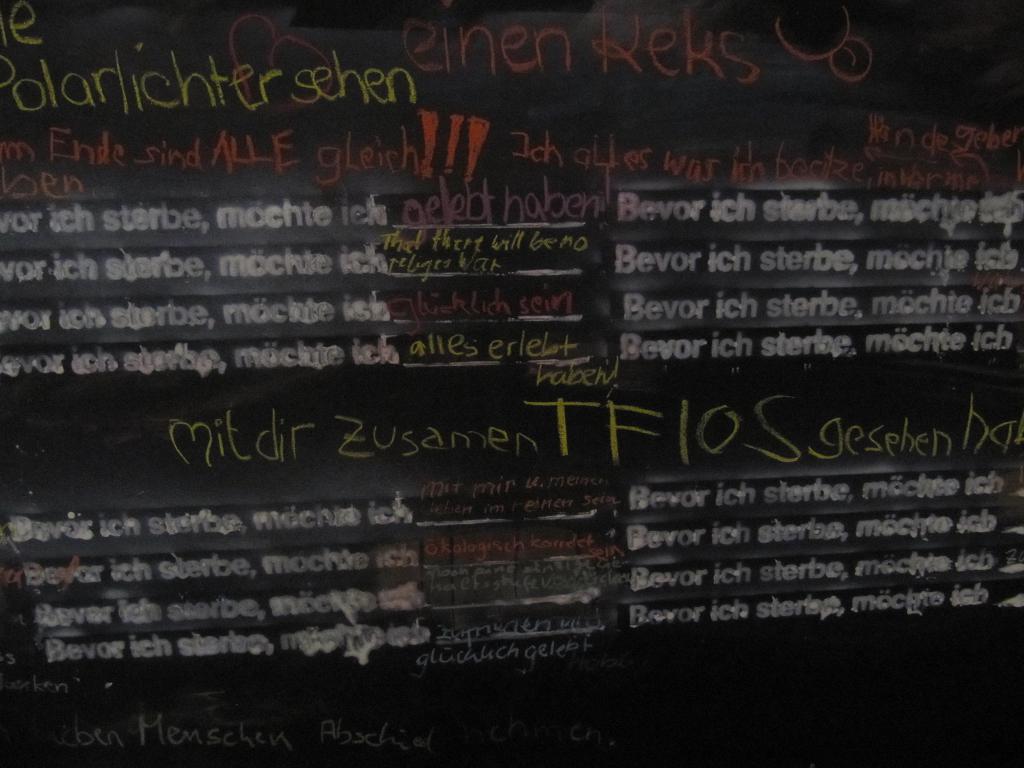 einen Keks
Polarlichter sehen
Ende sind ALLE gleich!!!
Ich alles was ich besitze,
Bevor ich sterbe, möchte ich
vor ich sterbe, möchte ich gelebt haben!
That there will be no
religes war
vor ich sterbe, möchte ich
Bevor ich sterbe, möchte ich
vor ich sterbe, möchte ich glücklich sein
Bevor ich sterbe, möchte ich
evor ich sterbe, möchte ich alles erlebt
haben!
Bevor ich sterbe, möchte ich
mit dir zusamen TFIOS gesehen
mit mir u. meinem
leben im reinen sein
Bevor ich sterbe, möchte ich
Bevor ich sterbe, möchte ich
ökologisch korrekt
sein
Bevor ich sterbe, möchte ich
Bevor ich sterbe, möchte ich
Bevor ich sterbe, möchte
Bevor ich sterbe, möchte ich
Bevor ich sterbe, möchte ich
glücklich gelebt
Bevor ich sterbe, möchte ich
Menschen Abschied nehmen.